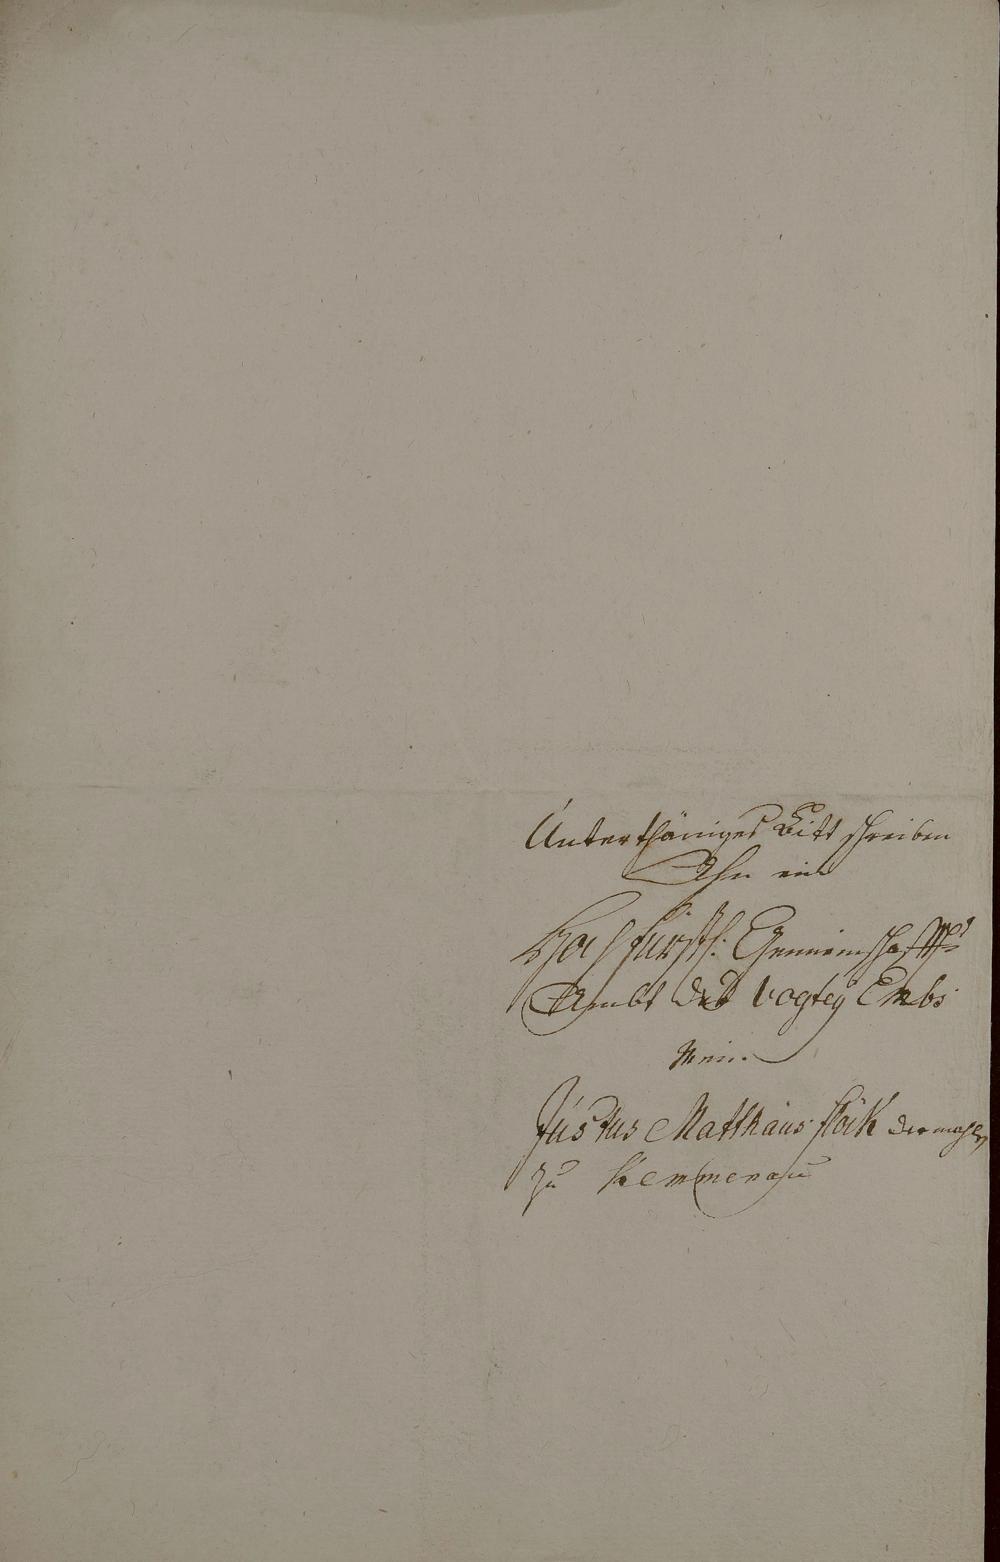 Unterthäniges Bitt schreiben
Ahn ein
Hochfürstl: Gemeinschafftl:
Ambt der Vogtey Embs
Mein
Justus Matthäus flöck dermahlen
zu Kemmenau